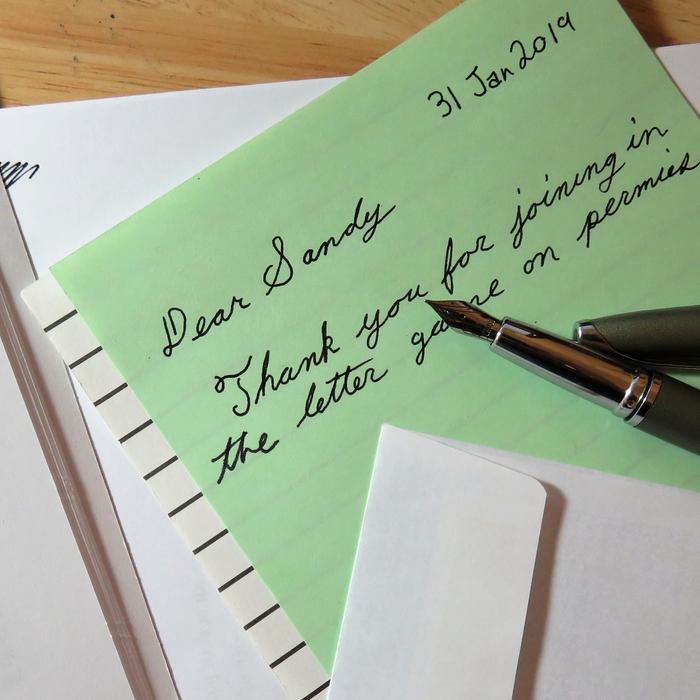 31 Jan 2019
Dear Sandy
Thank you for joining in
the letter game on permies